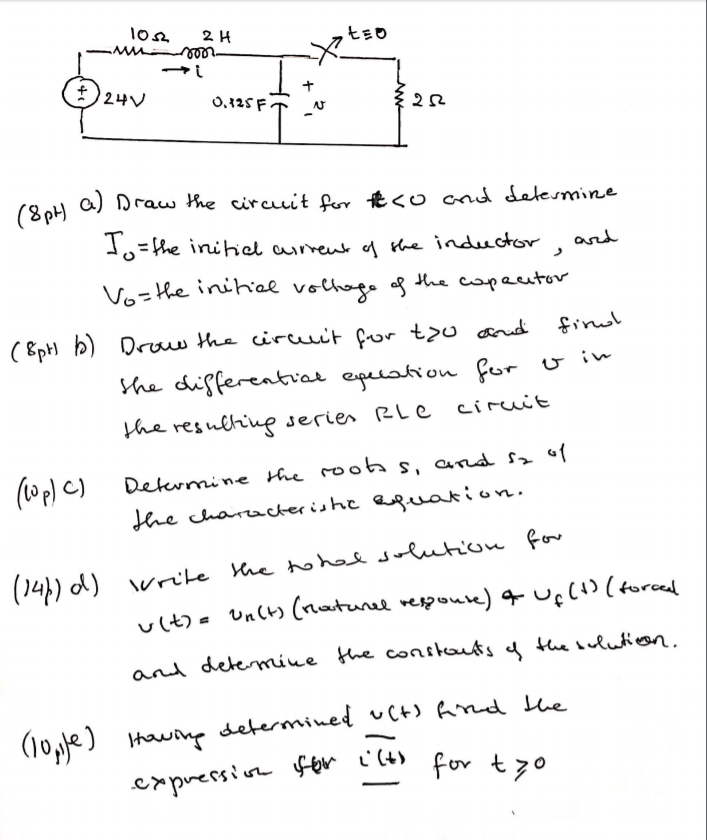 10Ω 2H t=0
i
+
24V 0.125F v 2Ω
-
(8pt) a) Draw the circuit for t<0 and determine
I₀=the initial current of the inductor, and
V₀=the initial voltage of the capacitor
(8pt) b) Draw the circuit for t>0 and find
the differential equation for v in
the resulting series RLC circuit
(10p) c) Determine the roots s₁ and s₂ of
the characteristic equation.
(14p) d) Write the total solution for
v(t) = vn(t) (natural response) + vf(t) (forced
and determine the constants of the solution.
(10p) e) Having determined v(t) find the
expression for i(t) for t⩾0